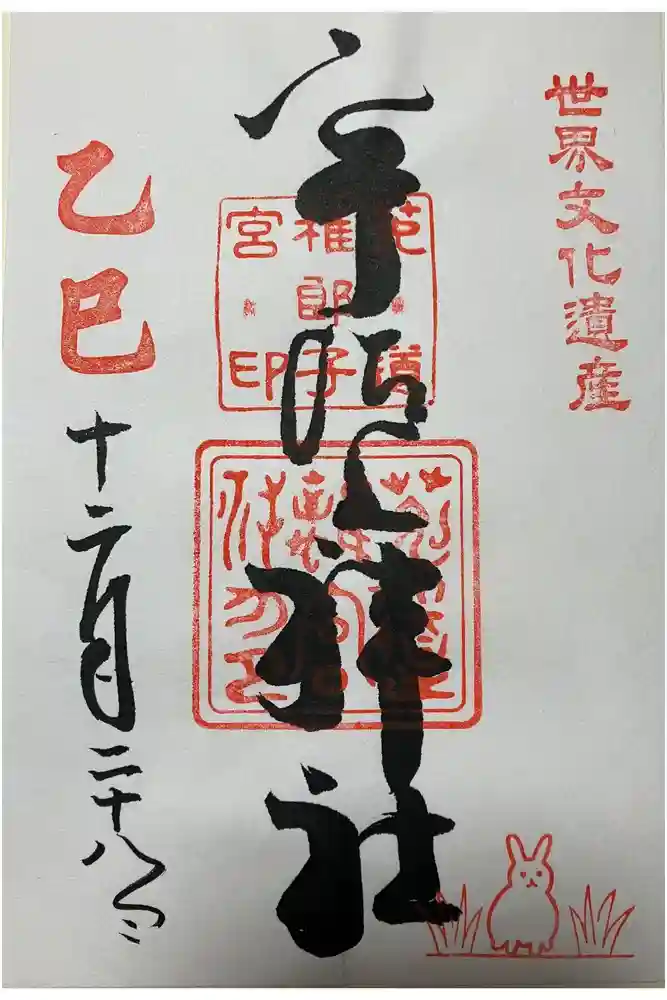 世界文化遺産
宇治上神社
菟道
稚郎子
宮印
乙巳
十二月二十八日